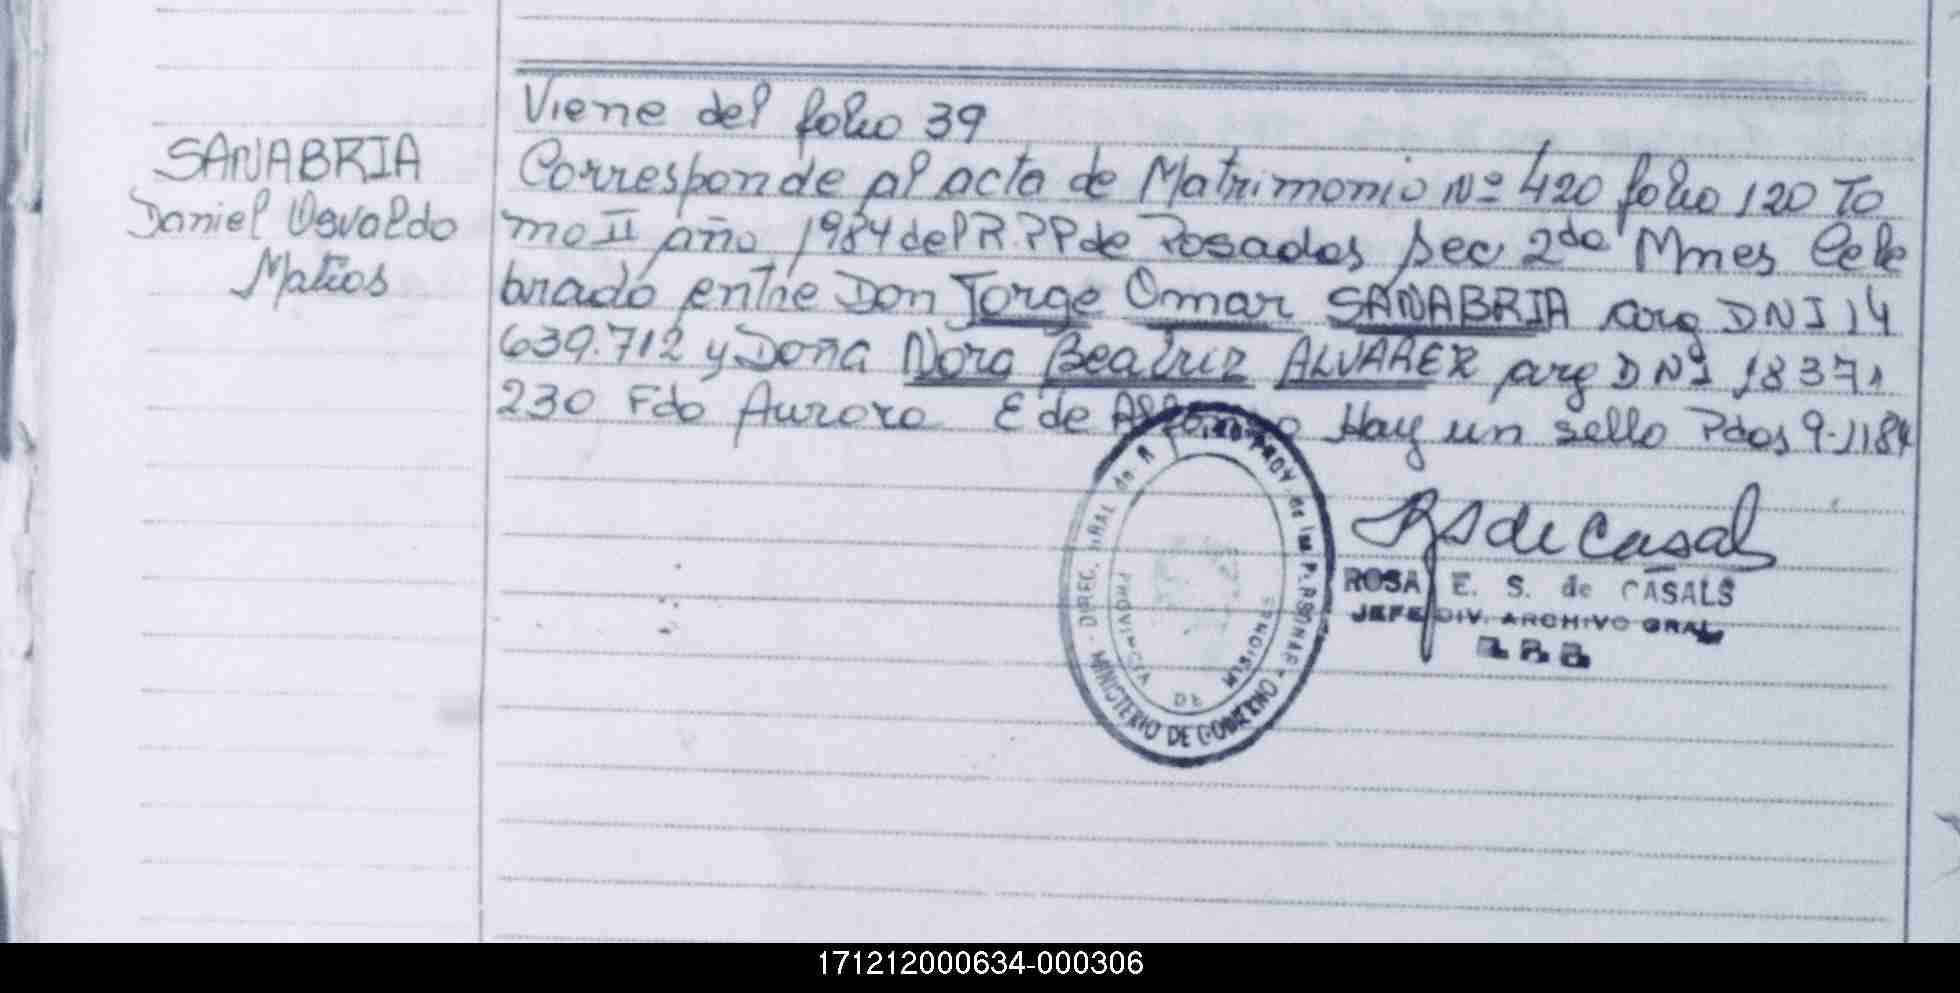 Viene del folio 39
SANABRIA
Daniel Osvaldo
Matios
Corresponde al acta de Matrimonio Nº 420 folio 120 To
mo II año 1984 del R.PP de Posadas sec 2da Mnes Cele
brado entre Don Jorge Omar SANABRIA arg DNI 14
639.712 y Doña Nora Beatriz ALVAREZ arg DNI 18371
230 Fdo Aurora E de Hay un sello Pdas 9-1184
DIREC. GRAL de
PROV. de las PERSONAS
MINISTERIO DE GOBIERNO
PROVINCIA DE MISIONES
de Casals
ROSA E. S. de CASALS
JEFE DIV. ARCHIVO GRAL.
171212000634-000306